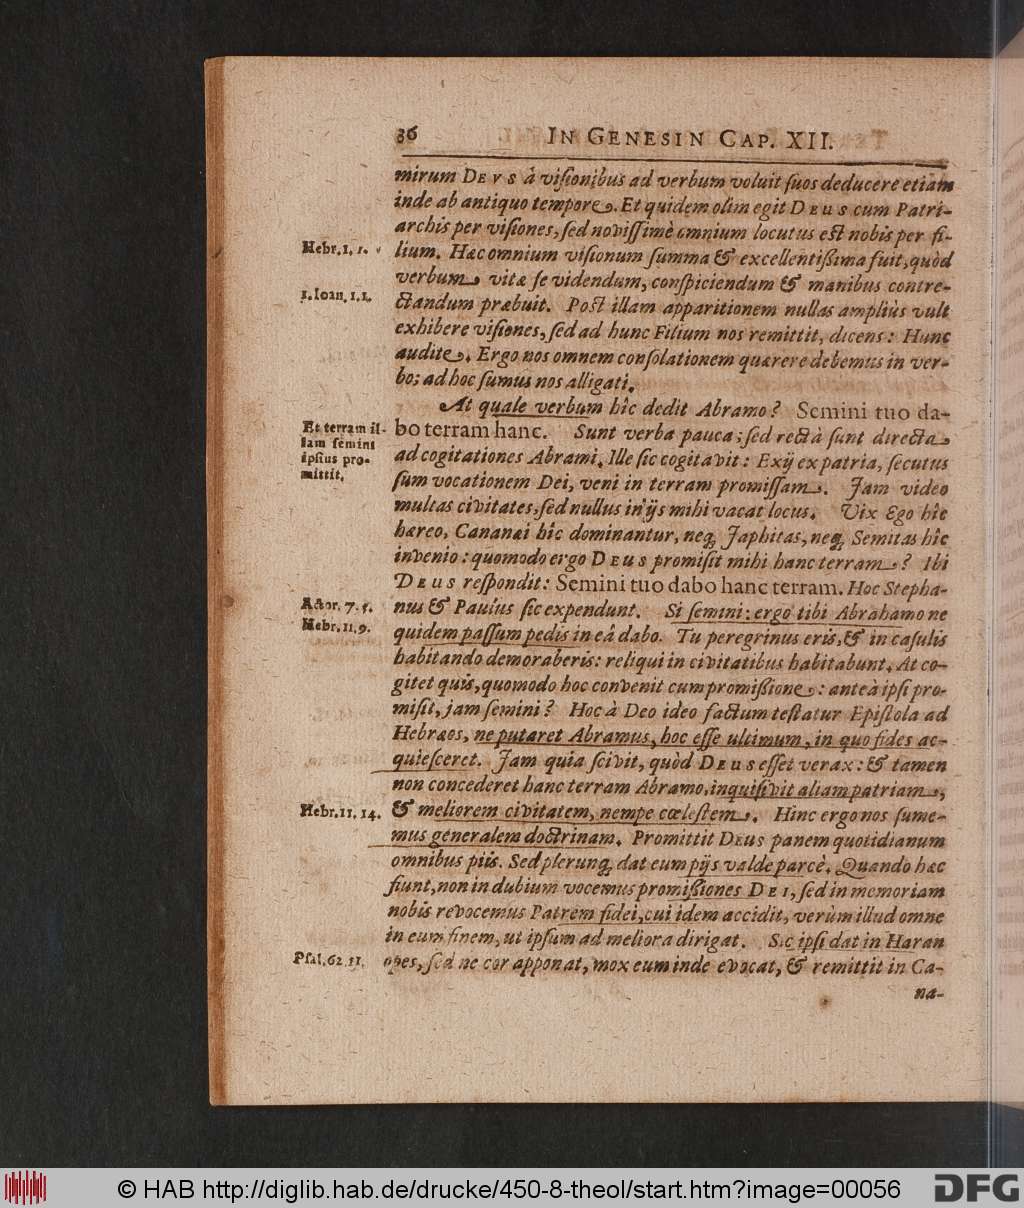 36 IN GENESIN CAP. XII.
mirum DEVS à visionibus ad verbum voluit suos deducere etiam
inde ab antiquo tempore. Et quidem olim egit DEUS cum Patri-
archis per visiones, sed novissimè omnium locutus est nobis per fi-
Hebr. 1, 1.
lium. Hæc omnium visionum summa & excellentißima fuit, quòd
verbum vitæ se videndum, conspiciendum & manibus contre-
1. Ioan. 1. 1.
ctandum præbuit. Post illam apparitionem nullas ampliùs vult
exhibere visiones, sed ad hunc Filium nos remittit, dicens: Hunc
audite. Ergo nos omnem consolationem quærere debemus in ver-
bo; ad hoc sumus nos alligati.
At quale verbum hîc dedit Abramo? Semini tuo da-
Et terram il-
lam semini
ipsius pro-
mittit.
bo terram hanc. Sunt verba pauca; sed rectà sunt directa
ad cogitationes Abrami. Ille sic cogitavit: Exij ex patria, secutus
sum vocationem Dei, veni in terram promissam. Jam video
multas civitates, sed nullus in ijs mihi vacat locus. Vix Ego hîc
hæreo, Cananæi hîc dominantur, neq; Japhitas, neq; Semitas hîc
invenio: quomodo ergo DEUS promisit mihi hanc terram? Ibi
DEUS respondit: Semini tuo dabo hanc terram. Hoc Stepha-
Actor. 7. 5.
Hebr. 11, 9.
nus & Paulus sic expendunt. Si semini: ergo tibi Abrahamo ne
quidem passum pedis in eâ dabo. Tu peregrinus eris, & in casulis
habitando demoraberis: reliqui in civitatibus habitabunt. At co-
gitet quis, quomodo hoc convenit cum promißione: anteà ipsi pro-
misit, jam semini? Hoc à Deo ideo factum testatur Epistola ad
Hebræos, ne putaret Abramus, hoc esse ultimum, in quo fides ac-
quiesceret. Jam quia scivit, quòd DEUS esset verax: & tamen
non concederet hanc terram Abramo, inquisivit aliam patriam,
Hebr. 11. 14.
& meliorem civitatem, nempe cœlestem. Hinc ergo nos sume-
mus generalem doctrinam. Promittit DEUS panem quotidianum
omnibus piis. Sed plerunq; dat eum pijs valde parcè. Quando hæc
fiunt, non in dubium vocemus promißiones DEI, sed in memoriam
nobis revocemus Patrem fidei, cui idem accidit, verùm illud omne
in eum finem, ut ipsum ad meliora dirigat. Sic ipsi dat in Haran
Psal. 62 11.
opes, sed ne cor apponat, mox eum inde evocat, & remittit in Ca-
na-
© HAB http://diglib.hab.de/drucke/450-8-theol/start.htm?image=00056
DFG